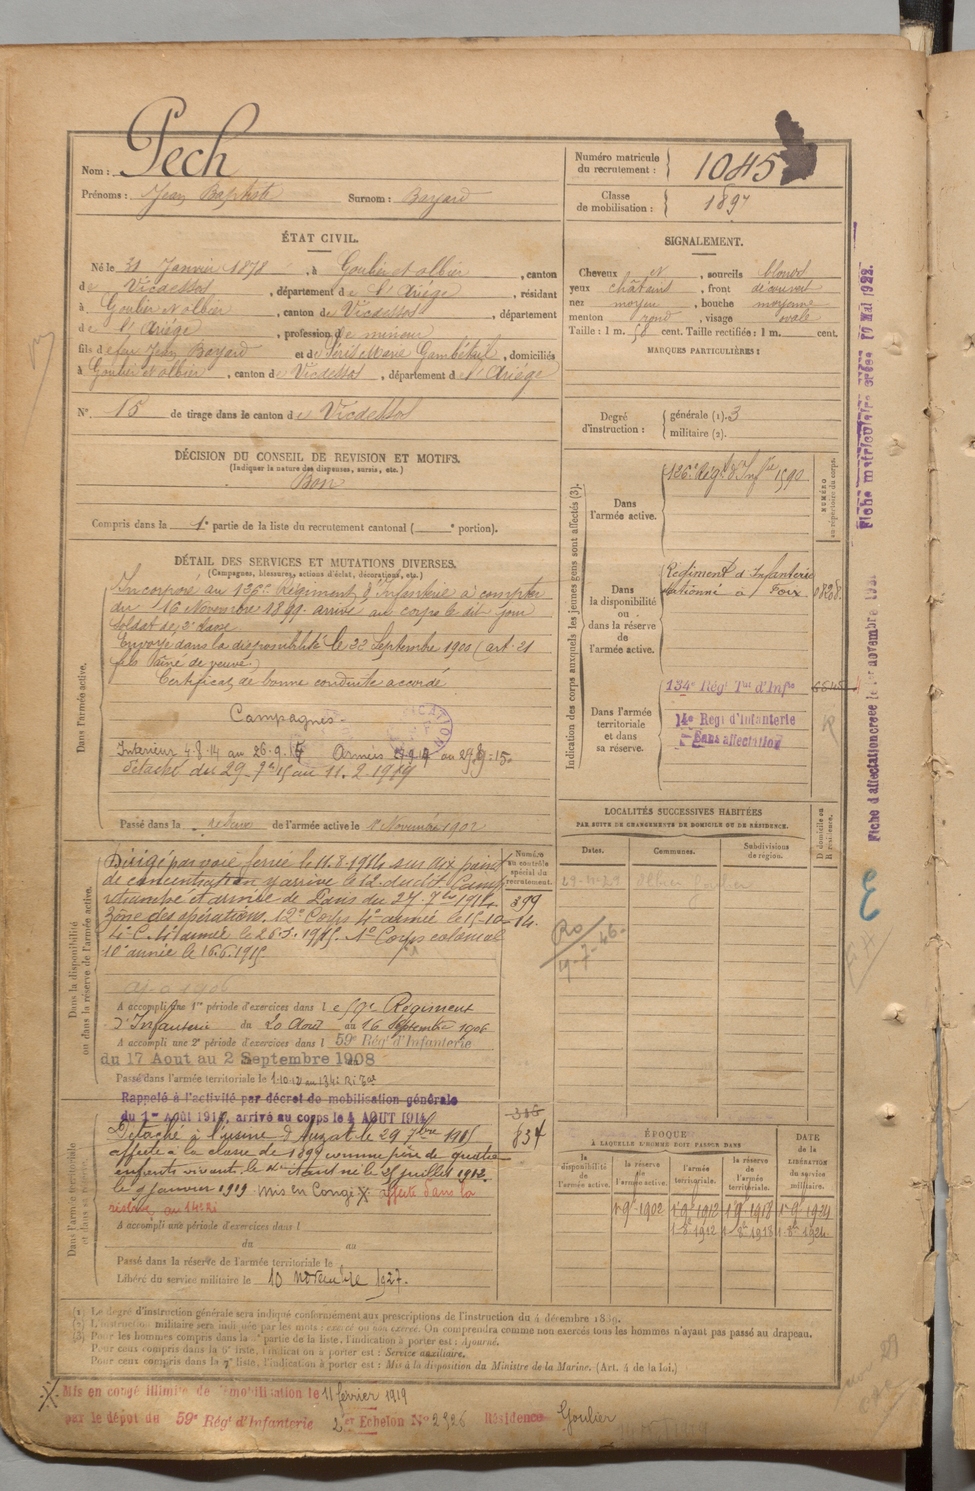 Nom : Pech
Prénoms : Jean Baptiste Surnom : Bayard
Numéro matricule
du recrutement : 1045
Classe
de mobilisation : 1897
ÉTAT CIVIL.
Né le 31 Janvier 1878, à Goulier et olbier, canton
de Vicdessos, département de l'Ariége, résidant
à Goulier et olbier, canton de Vicdessos, département
de l'Ariége, profession de mineur
fils de feu Jean Bayard et de Marie Gambétul, domiciliés
à Goulier et olbier, canton de Vicdessos, département de l'Ariége
N° 15 de tirage dans le canton de Vicdessos
SIGNALEMENT.
Cheveux et, sourcils blond
yeux châtains, front découvert
nez moyen, bouche moyenne
menton rond, visage ovale
Taille : 1 m. 58 cent. Taille rectifiée : 1 m. cent.
MARQUES PARTICULIÈRES :
Degré
d'instruction :
générale (1). 3
militaire (2).
DÉCISION DU CONSEIL DE REVISION ET MOTIFS.
(Indiquer la nature des dispenses, sursis, etc.)
Bon
Compris dans la 1e partie de la liste du recrutement cantonal ( e portion).
DÉTAIL DES SERVICES ET MUTATIONS DIVERSES.
(Campagnes, blessures, actions d'éclat, décorations, etc.)
Dans l'armée active.
Incorporé au 126e Régiment d'Infanterie à compter
du 16 Novembre 1899. arrivé au corps le dit jour
soldat de 2e classe
Envoyé dans la disponibilité le 22 Septembre 1900 (art. 21
fils aîné de veuve)
Certificat de bonne conduite accordé
Campagnes.
Intérieur 4-8-14 au 26-9-14 Armées au 29-9-15.
détaché du 29-7bre 15 au 11-2-1919
Passé dans la réserve de l'armée active le 1er Novembre 1902
Indication des corps auxquels les jeunes gens sont affectés (3).
NUMÉRO
au répertoire du corps.
Dans
l'armée active.
126e Régt d'Infie 1590
Dans
la disponibilité
ou
dans la réserve
de
l'armée active.
Régiment d'Infanterie
stationné à Foix
Dans l'armée
territoriale
et dans
sa réserve.
134e Régt Tal d'Infie
14e Régt d'Infanterie
Sans affectation
Dans la disponibilité
ou dans la réserve de l'armée active.
Numéro
au contrôle
spécial du
recrutement.
Dirigé par voie ferrée le 11.8.1914 sur dix points
de concentration y arrive le 12 dudit. Camp
retranché et armée de Paris du 27 7bre 1914
Zône des opérations. 12e Corps 4e armée le 15-10-14.
4e C. 4e armée le 26.5.1915. 1e Corps colonial
10e armée le 16.6.1915.
399
A accompli une 1re période d'exercices dans le 59e Régiment
d'Infanterie du 20 Août au 16 Septembre 1906
A accompli une 2e période d'exercices dans l 59e Régt d'Infanterie
du 17 Aout au 2 Septembre 1908
Passé dans l'armée territoriale le 1-10-12 au 134e RI Tal
Dans l'armée territoriale
et dans sa réserve.
Rappelé à l'activité par décret de mobilisation générale
du 1er Août 1914, arrivé au corps le 4 AOUT 1914
Détaché à l'usine d'Auzat le 29 7bre 1915
affecté à la classe de 1899 comme père de quatre
enfants vivants, le 4e étant né le 25 juillet 1912.
le 9 Janvier 1919. Mis en Congé X. affecté dans la
réserve au 14e RI
834
A accompli une période d'exercices dans l
du au
Passé dans la réserve de l'armée territoriale le
Libéré du service militaire le 10 novembre 1927.
LOCALITÉS SUCCESSIVES HABITÉES
PAR SUITE DE CHANGEMENTS DE DOMICILE OU DE RÉSIDENCE.
Dates. Communes. Subdivisions
de région. D domicile ou
R résidence.
Olbier Goulier
Ro
19-7-46-
ÉPOQUE
À LAQUELLE L'HOMME DOIT PASSER DANS
DATE
DE LA
LIBÉRATION
du service
militaire.
la
disponibilité
de
l'armée active.
la réserve
de
l'armée active.
l'armée
territoriale.
la réserve
de
l'armée
territoriale.
1-9e-1902 1-9e 1912 1-9e-1918 1-9e 1924
1-8e 1912 1-8e 1918 1-8e 1924
(1) Le degré d'instruction générale sera indiqué conformément aux prescriptions de l'instruction du 4 décembre 1889.
(2) L'instruction militaire sera indiquée par les mots : exercé ou non exercé. On comprendra comme non exercés tous les hommes n'ayant pas passé au drapeau.
(3) Pour les hommes compris dans la partie de la liste, l'indication à porter est : Ajourné.
Pour ceux compris dans la 6e liste, l'indication à porter est : Service auxiliaire.
Pour ceux compris dans la 7e liste, l'indication à porter est : Mis à la disposition du Ministre de la Marine. (Art. 4 de la loi.)
X. Mis en congé illimité de démobilisation le 11 février 1919
par le dépôt du 59e Régt d'Infanterie 2er Echelon N° 2926 Résidence Goulier
Fiche matriculaire créée 10 Mai 1922.
Fiche d'affectation créée le 1er novembre